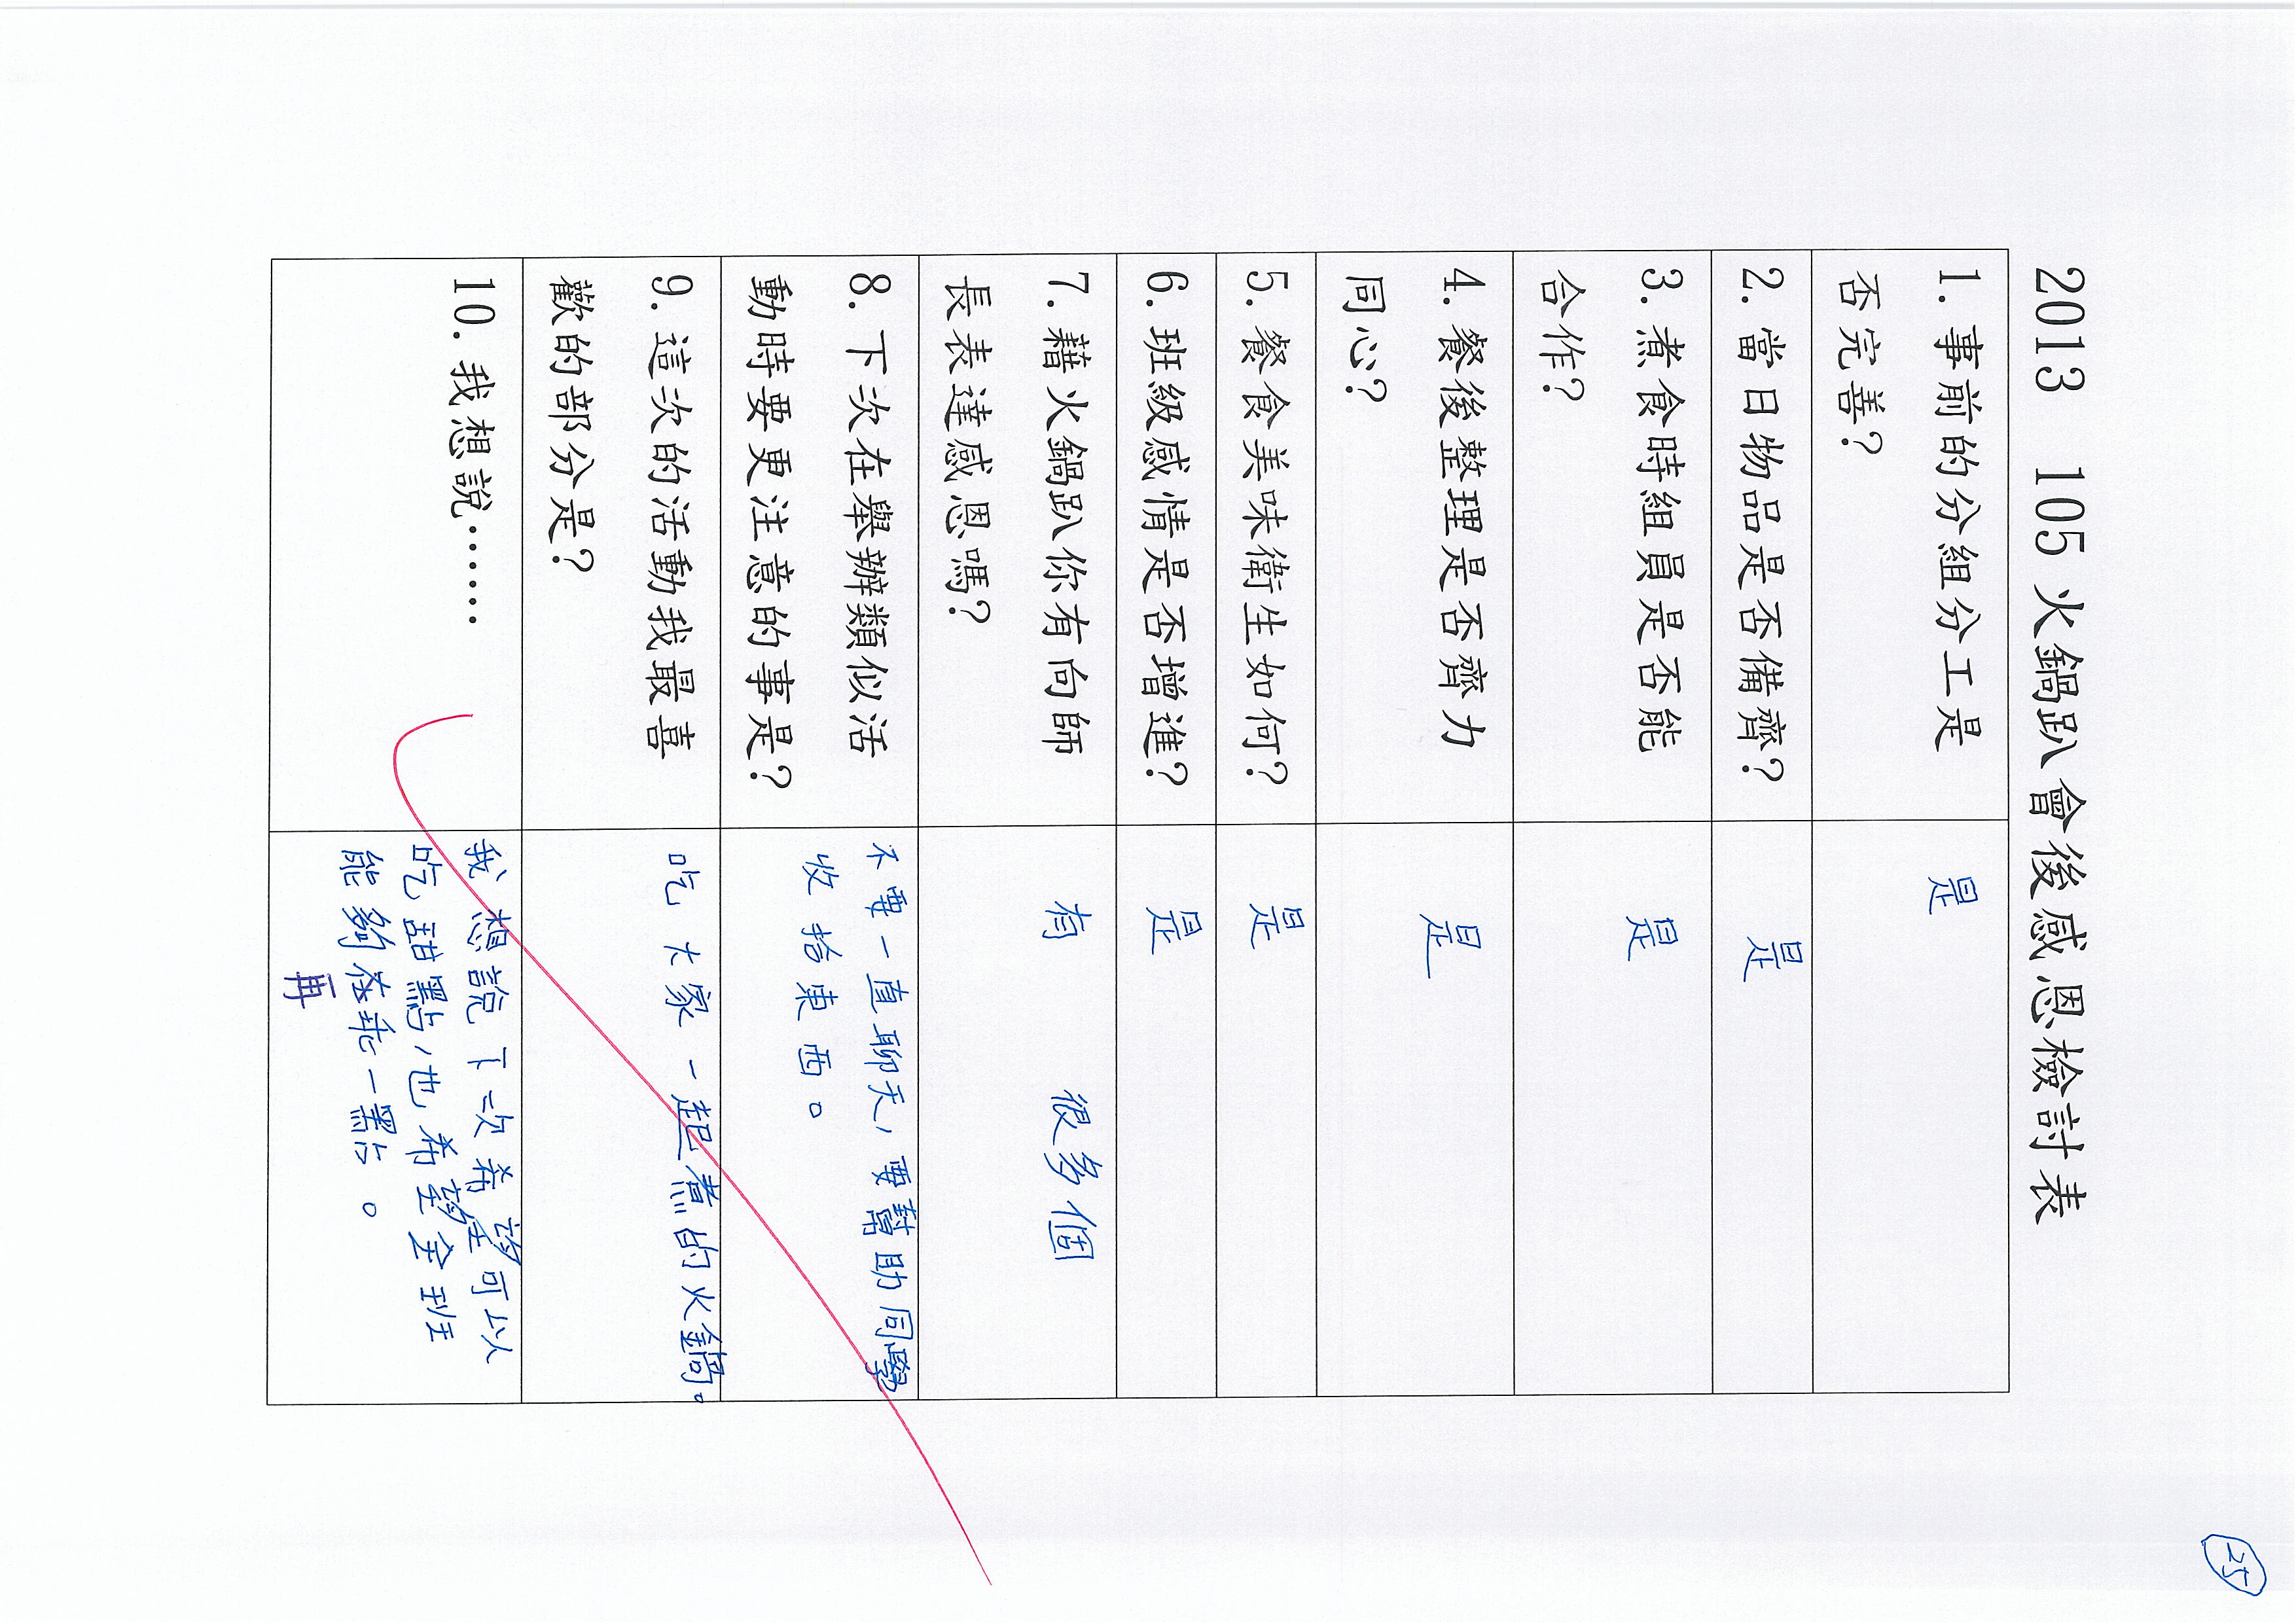 25
2013 105火鍋趴會後感恩檢討表
1. 事前的分組分工是
否完善?
是
2. 當日物品是否備齊?
是
3. 煮食時組員是否能
合作?
是
4. 餐後整理是否齊力
同心?
是
5. 餐食美味衛生如何?
是
6. 班級感情是否增進?
是
7. 藉火鍋趴你有向師
長表達感恩嗎?
有 很多個
8. 下次在舉辦類似活
動時要更注意的事是?
不要一直聊天,要幫助同學
收拾東西。
9. 這次的活動我最喜
歡的部分是?
吃大家一起煮的火鍋。
10. 我想說.......
我想說下次希望可以
吃甜點,也希望全班
能夠在乖一點。
再